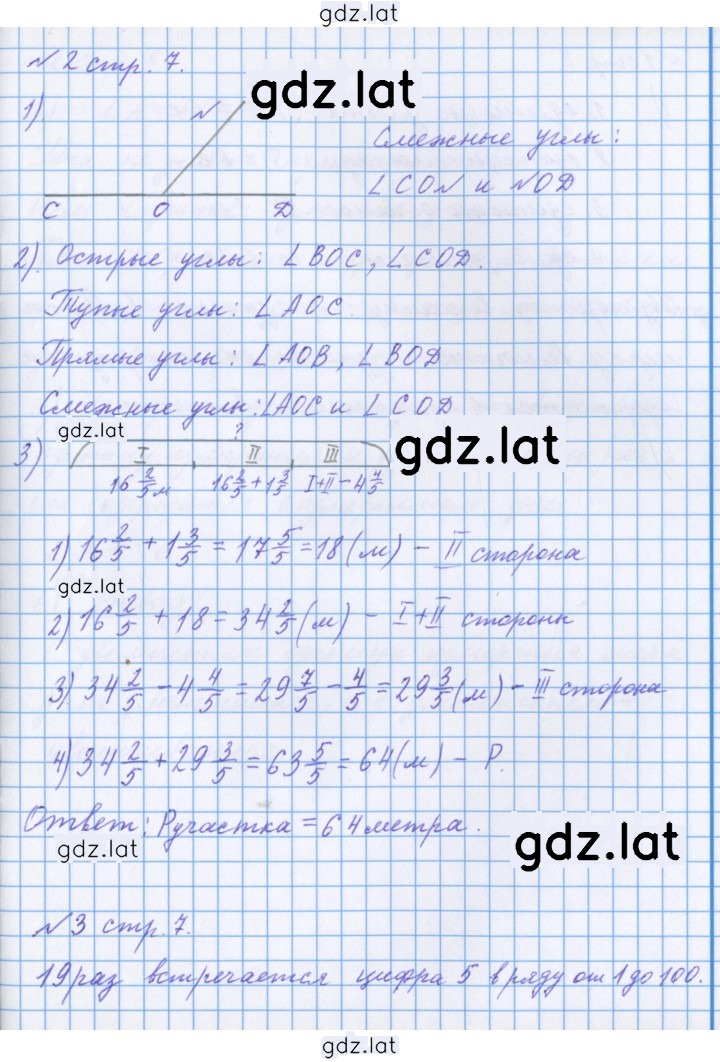 gdz.lat
№ 2 стр. 7.
gdz.lat
1)
N
Смежные углы:
∠CON и NOD
C O D
2). Острые углы: ∠BOC, ∠COD.
Тупые углы: ∠AOC.
Прямые углы: ∠AOB, ∠BOD
Смежные углы: ∠AOC и ∠COD
gdz.lat
?
gdz.lat
3) I II III
16 2/5 м 16 2/5 + 1 3/5 I+II − 4 4/5
1) 16 2/5 + 1 3/5 = 17 5/5 = 18 (м) − II сторона
gdz.lat
2) 16 2/5 + 18 = 34 2/5 (м) − I+II стороны
3) 34 2/5 − 4 4/5 = 29 7/5 − 4/5 = 29 3/5 (м) − III сторона
4) 34 2/5 + 29 3/5 = 63 5/5 = 64 (м) − P.
Ответ: Pучастка = 64 метра.
gdz.lat
gdz.lat
№ 3 стр. 7.
19 раз встречается цифра 5 в ряду от 1 до 100.
gdz.lat